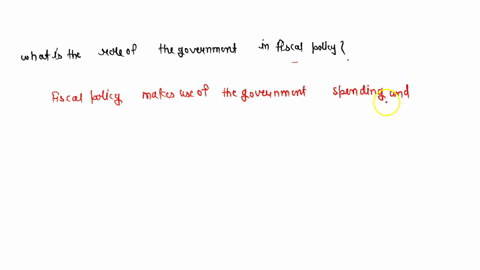 what is the role of the government in fiscal policy?
Fiscal policy makes use of the government spending and